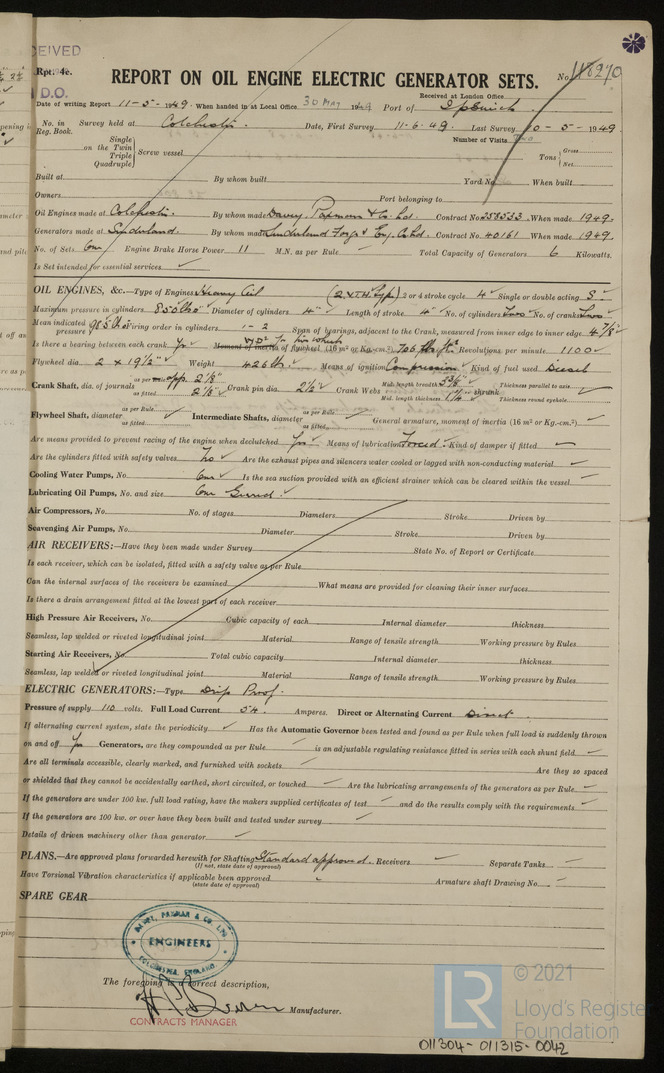 CEIVED
Rpt. 4c.
D.O.
REPORT ON OIL ENGINE ELECTRIC GENERATOR SETS.
No. 118270
Received at London Office
Date of writing Report 11-5-1949. When handed in at Local Office 30 May 1949 Port of Ipswich.
No. in Reg. Book. Survey held at Colchester. Date, First Survey 11-6-49. Last Survey 10-5-1949.
Number of Visits Two
Single on the Twin Triple Quadruple Screw vessel Tons Gross Net
Built at By whom built Yard No. When built
Owners Port belonging to
Oil Engines made at Colchester. By whom made Davey, Paxman & Co Ltd Contract No. 258533 When made 1949.
Generators made at Sunderland. By whom made Sunderland Forge & Eng. Co Ltd Contract No. 40161 When made 1949.
No. of Sets One Engine Brake Horse Power 11 M.N. as per Rule Total Capacity of Generators 6 Kilowatts.
Is Set intended for essential services ✓
OIL ENGINES, &c.—Type of Engines Heavy Oil 2 or 4 stroke cycle 4 Single or double acting S.
Maximum pressure in cylinders 850 lbs Diameter of cylinders 4" Length of stroke 4" No. of cylinders Two No. of cranks Two
Mean indicated pressure 98.5 lbs Firing order in cylinders 1-2 Span of bearings, adjacent to the Crank, measured from inner edge to inner edge 4 7/8"
Is there a bearing between each crank Yes Moment of inertia of flywheel (16 m² or Kg.-cm.²) Revolutions per minute 1100
Flywheel dia. 2 x 19½" Weight 426 lb. Means of ignition Compression Kind of fuel used Diesel
Crank Shaft, dia. of journals as per Rule app. 2 1/8" as fitted 2 1/8" Crank pin dia. 2½" Crank Webs Mid. length breadth 3 3/8" Mid. length thickness 1¼" shrunk Thickness parallel to axis Thickness round eyehole
Flywheel Shaft, diameter as per Rule as fitted Intermediate Shafts, diameter as per Rule as fitted General armature, moment of inertia (16 m² or Kg.-cm.²)
Are means provided to prevent racing of the engine when declutched Yes Means of lubrication Forced Kind of damper if fitted
Are the cylinders fitted with safety valves No Are the exhaust pipes and silencers water cooled or lagged with non-conducting material
Cooling Water Pumps, No. One Is the sea suction provided with an efficient strainer which can be cleared within the vessel
Lubricating Oil Pumps, No. and size One Geared
Air Compressors, No. No. of stages Diameters Stroke Driven by
Scavenging Air Pumps, No. Diameter Stroke Driven by
AIR RECEIVERS:—Have they been made under Survey State No. of Report or Certificate
Is each receiver, which can be isolated, fitted with a safety valve as per Rule
Can the internal surfaces of the receivers be examined What means are provided for cleaning their inner surfaces
Is there a drain arrangement fitted at the lowest part of each receiver
High Pressure Air Receivers, No. Cubic capacity of each Internal diameter thickness
Seamless, lap welded or riveted longitudinal joint Material Range of tensile strength Working pressure by Rules
Starting Air Receivers, No. Total cubic capacity Internal diameter thickness
Seamless, lap welded or riveted longitudinal joint Material Range of tensile strength Working pressure by Rules
ELECTRIC GENERATORS:—Type Drip Proof.
Pressure of supply 110 volts. Full Load Current 54 Amperes. Direct or Alternating Current Direct
If alternating current system, state the periodicity Has the Automatic Governor been tested and found as per Rule when full load is suddenly thrown
on and off Yes Generators, are they compounded as per Rule is an adjustable regulating resistance fitted in series with each shunt field
Are all terminals accessible, clearly marked, and furnished with sockets Are they so spaced
or shielded that they cannot be accidentally earthed, short circuited, or touched Are the lubricating arrangements of the generators as per Rule
If the generators are under 100 kw. full load rating, have the makers supplied certificates of test and do the results comply with the requirements
If the generators are 100 kw. or over have they been built and tested under survey
Details of driven machinery other than generator
PLANS.—Are approved plans forwarded herewith for Shafting Standard approved. Receivers Separate Tanks
(If not, state date of approval)
Have Torsional Vibration characteristics if applicable been approved Armature shaft Drawing No.
(state date of approval)
SPARE GEAR
DAVEY, PAXMAN & CO. LTD
ENGINEERS
COLCHESTER, ENGLAND
The foregoing is a correct description,
Manufacturer.
CONTRACTS MANAGER
LR © 2021
Lloyd's Register
Foundation
011304-011315-0042